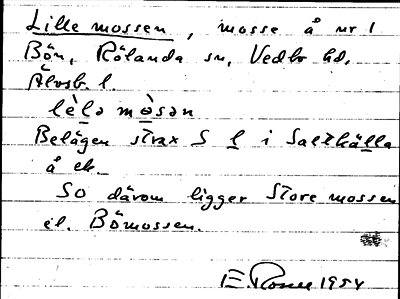 Lille mossen, mosse å nr 1
Bön, Rölanda sn, Vedbo hd,
Älvsb. l.
lèlə mòsən
Belägen strax S l i Saltkälla
å ek.
SO därom ligger Store mossen
el. Bömossen.
E. Rosell 1954